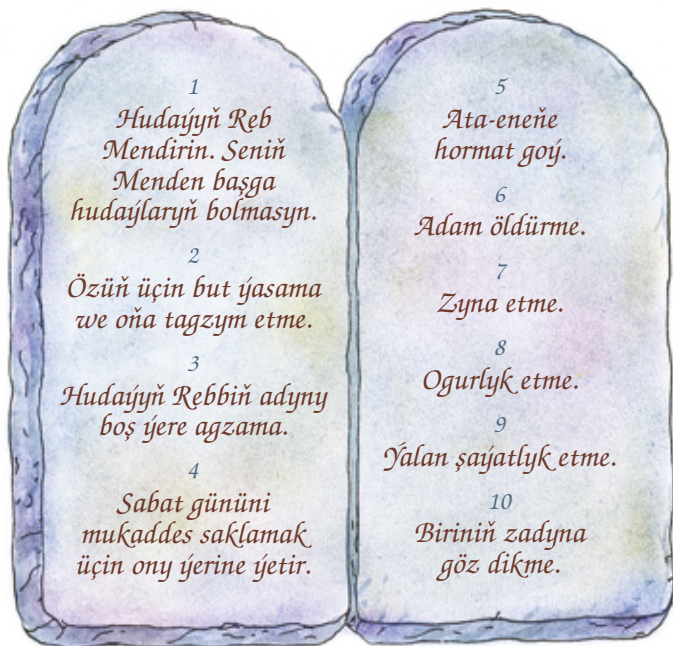 1
Hudaýyň Reb
Mendirin. Seniň
Menden başga
hudaýlaryň bolmasyn.
2
Özüň üçin but ýasama
we oňa tagzym etme.
3
Hudaýyň Rebbiň adyny
boş ýere agzama.
4
Sabat gününi
mukaddes saklamak
üçin ony ýerine ýetir.
5
Ata-eneňe
hormat goý.
6
Adam öldürme.
7
Zyna etme.
8
Ogurlyk etme.
9
Ýalan şaýatlyk etme.
10
Biriniň zadyna
göz dikme.